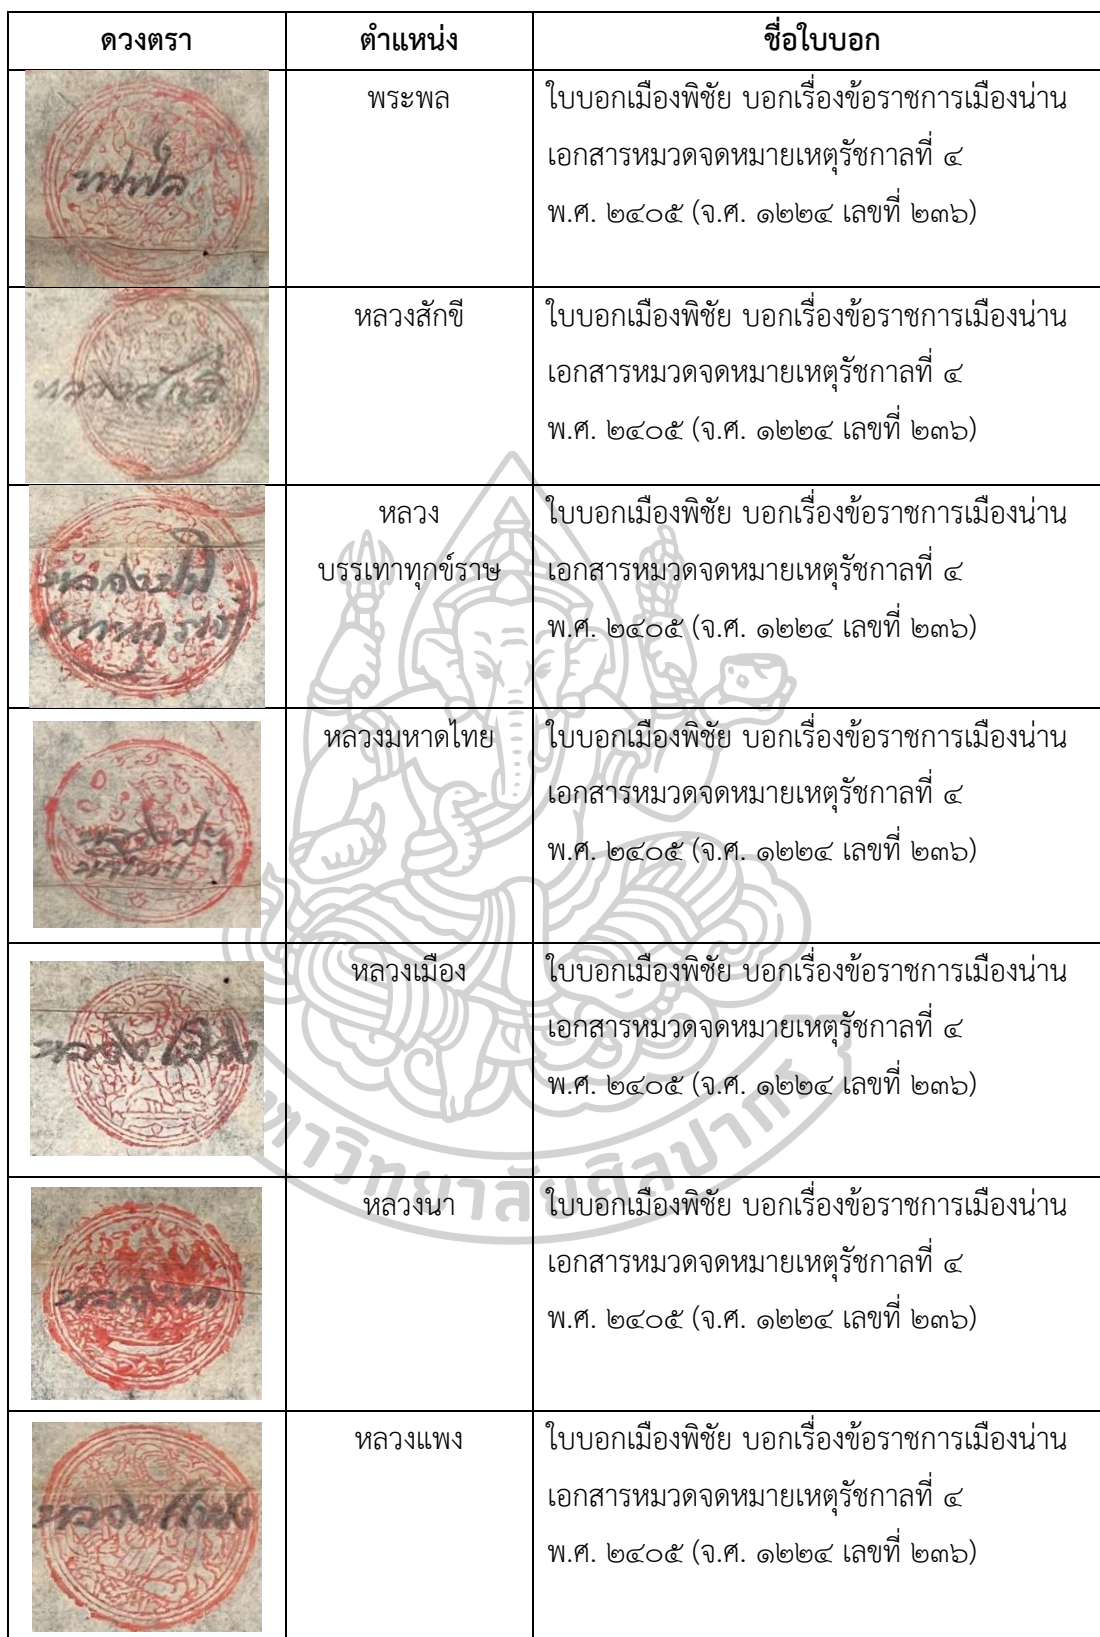 ดวงตรา ตำแหน่ง ชื่อใบบอก
พระพล ใบบอกเมืองพิชัย บอกเรื่องข้อราชการเมืองน่าน
เอกสารหมวดจดหมายเหตุรัชกาลที่ ๔
พ.ศ. ๒๔๐๕ (จ.ศ. ๑๒๒๔ เลขที่ ๒๓๖)
หลวงสักขี ใบบอกเมืองพิชัย บอกเรื่องข้อราชการเมืองน่าน
เอกสารหมวดจดหมายเหตุรัชกาลที่ ๔
พ.ศ. ๒๔๐๕ (จ.ศ. ๑๒๒๔ เลขที่ ๒๓๖)
หลวง ใบบอกเมืองพิชัย บอกเรื่องข้อราชการเมืองน่าน
บรรเทาทุกข์ราษ เอกสารหมวดจดหมายเหตุรัชกาลที่ ๔
พ.ศ. ๒๔๐๕ (จ.ศ. ๑๒๒๔ เลขที่ ๒๓๖)
หลวงมหาดไทย ใบบอกเมืองพิชัย บอกเรื่องข้อราชการเมืองน่าน
เอกสารหมวดจดหมายเหตุรัชกาลที่ ๔
พ.ศ. ๒๔๐๕ (จ.ศ. ๑๒๒๔ เลขที่ ๒๓๖)
หลวงเมือง ใบบอกเมืองพิชัย บอกเรื่องข้อราชการเมืองน่าน
เอกสารหมวดจดหมายเหตุรัชกาลที่ ๔
พ.ศ. ๒๔๐๕ (จ.ศ. ๑๒๒๔ เลขที่ ๒๓๖)
หลวงนา ใบบอกเมืองพิชัย บอกเรื่องข้อราชการเมืองน่าน
เอกสารหมวดจดหมายเหตุรัชกาลที่ ๔
พ.ศ. ๒๔๐๕ (จ.ศ. ๑๒๒๔ เลขที่ ๒๓๖)
หลวงแพง ใบบอกเมืองพิชัย บอกเรื่องข้อราชการเมืองน่าน
เอกสารหมวดจดหมายเหตุรัชกาลที่ ๔
พ.ศ. ๒๔๐๕ (จ.ศ. ๑๒๒๔ เลขที่ ๒๓๖)